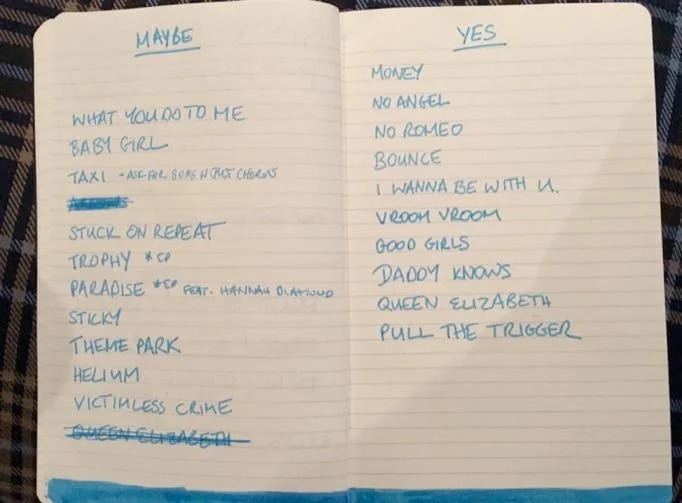 MAYBE
WHAT YOU DO TO ME
BABY GIRL
TAXI - ASK FOR SONG N POST CHORUS
STUCK ON REPEAT
TROPHY *EP
PARADISE *EP FEAT. HANNAH DIAMOND
STICKY
THEME PARK
HELIUM
VICTIMLESS CRIME
QUEEN ELIZABETH
YES
MONEY
NO ANGEL
NO ROMEO
BOUNCE
I WANNA BE WITH U.
VROOM VROOM
GOOD GIRLS
DADDY KNOWS
QUEEN ELIZABETH
PULL THE TRIGGER